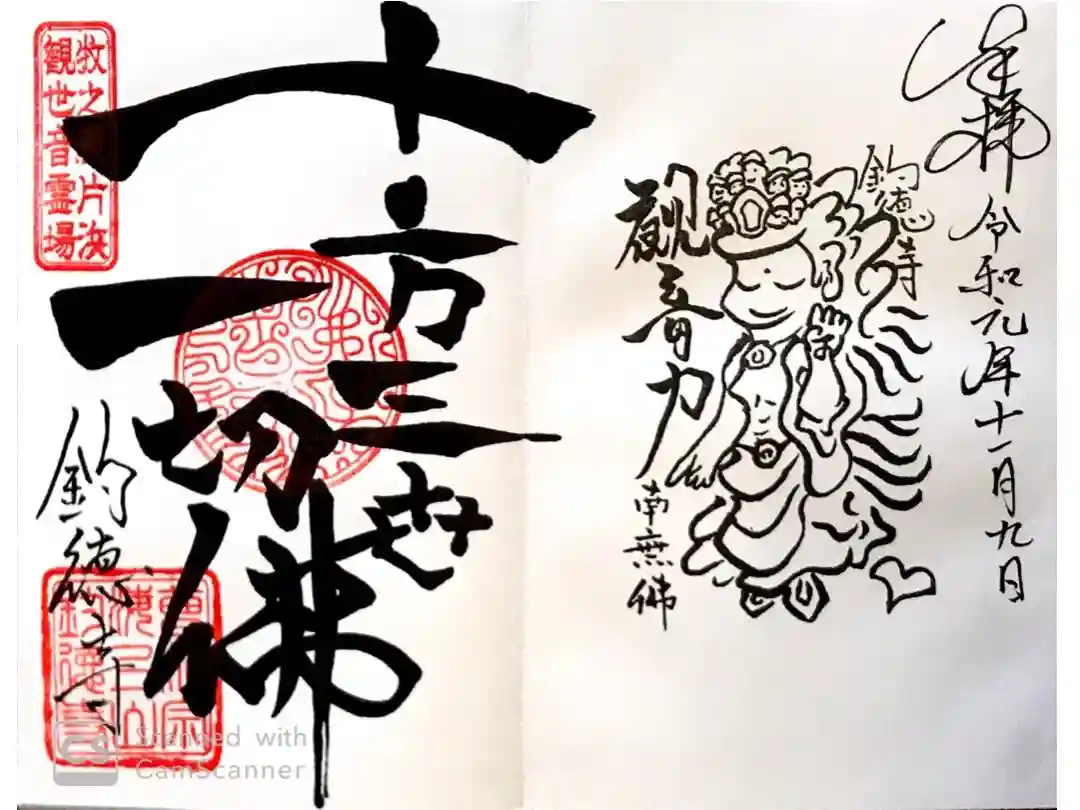 奉拝
令和元年十一月九日
釣徳寺
観音力
南無佛
十方三世
一切佛
牧之原片浜
観世音霊場
釣徳寺
釣徳寺
Scanned with
CamScanner